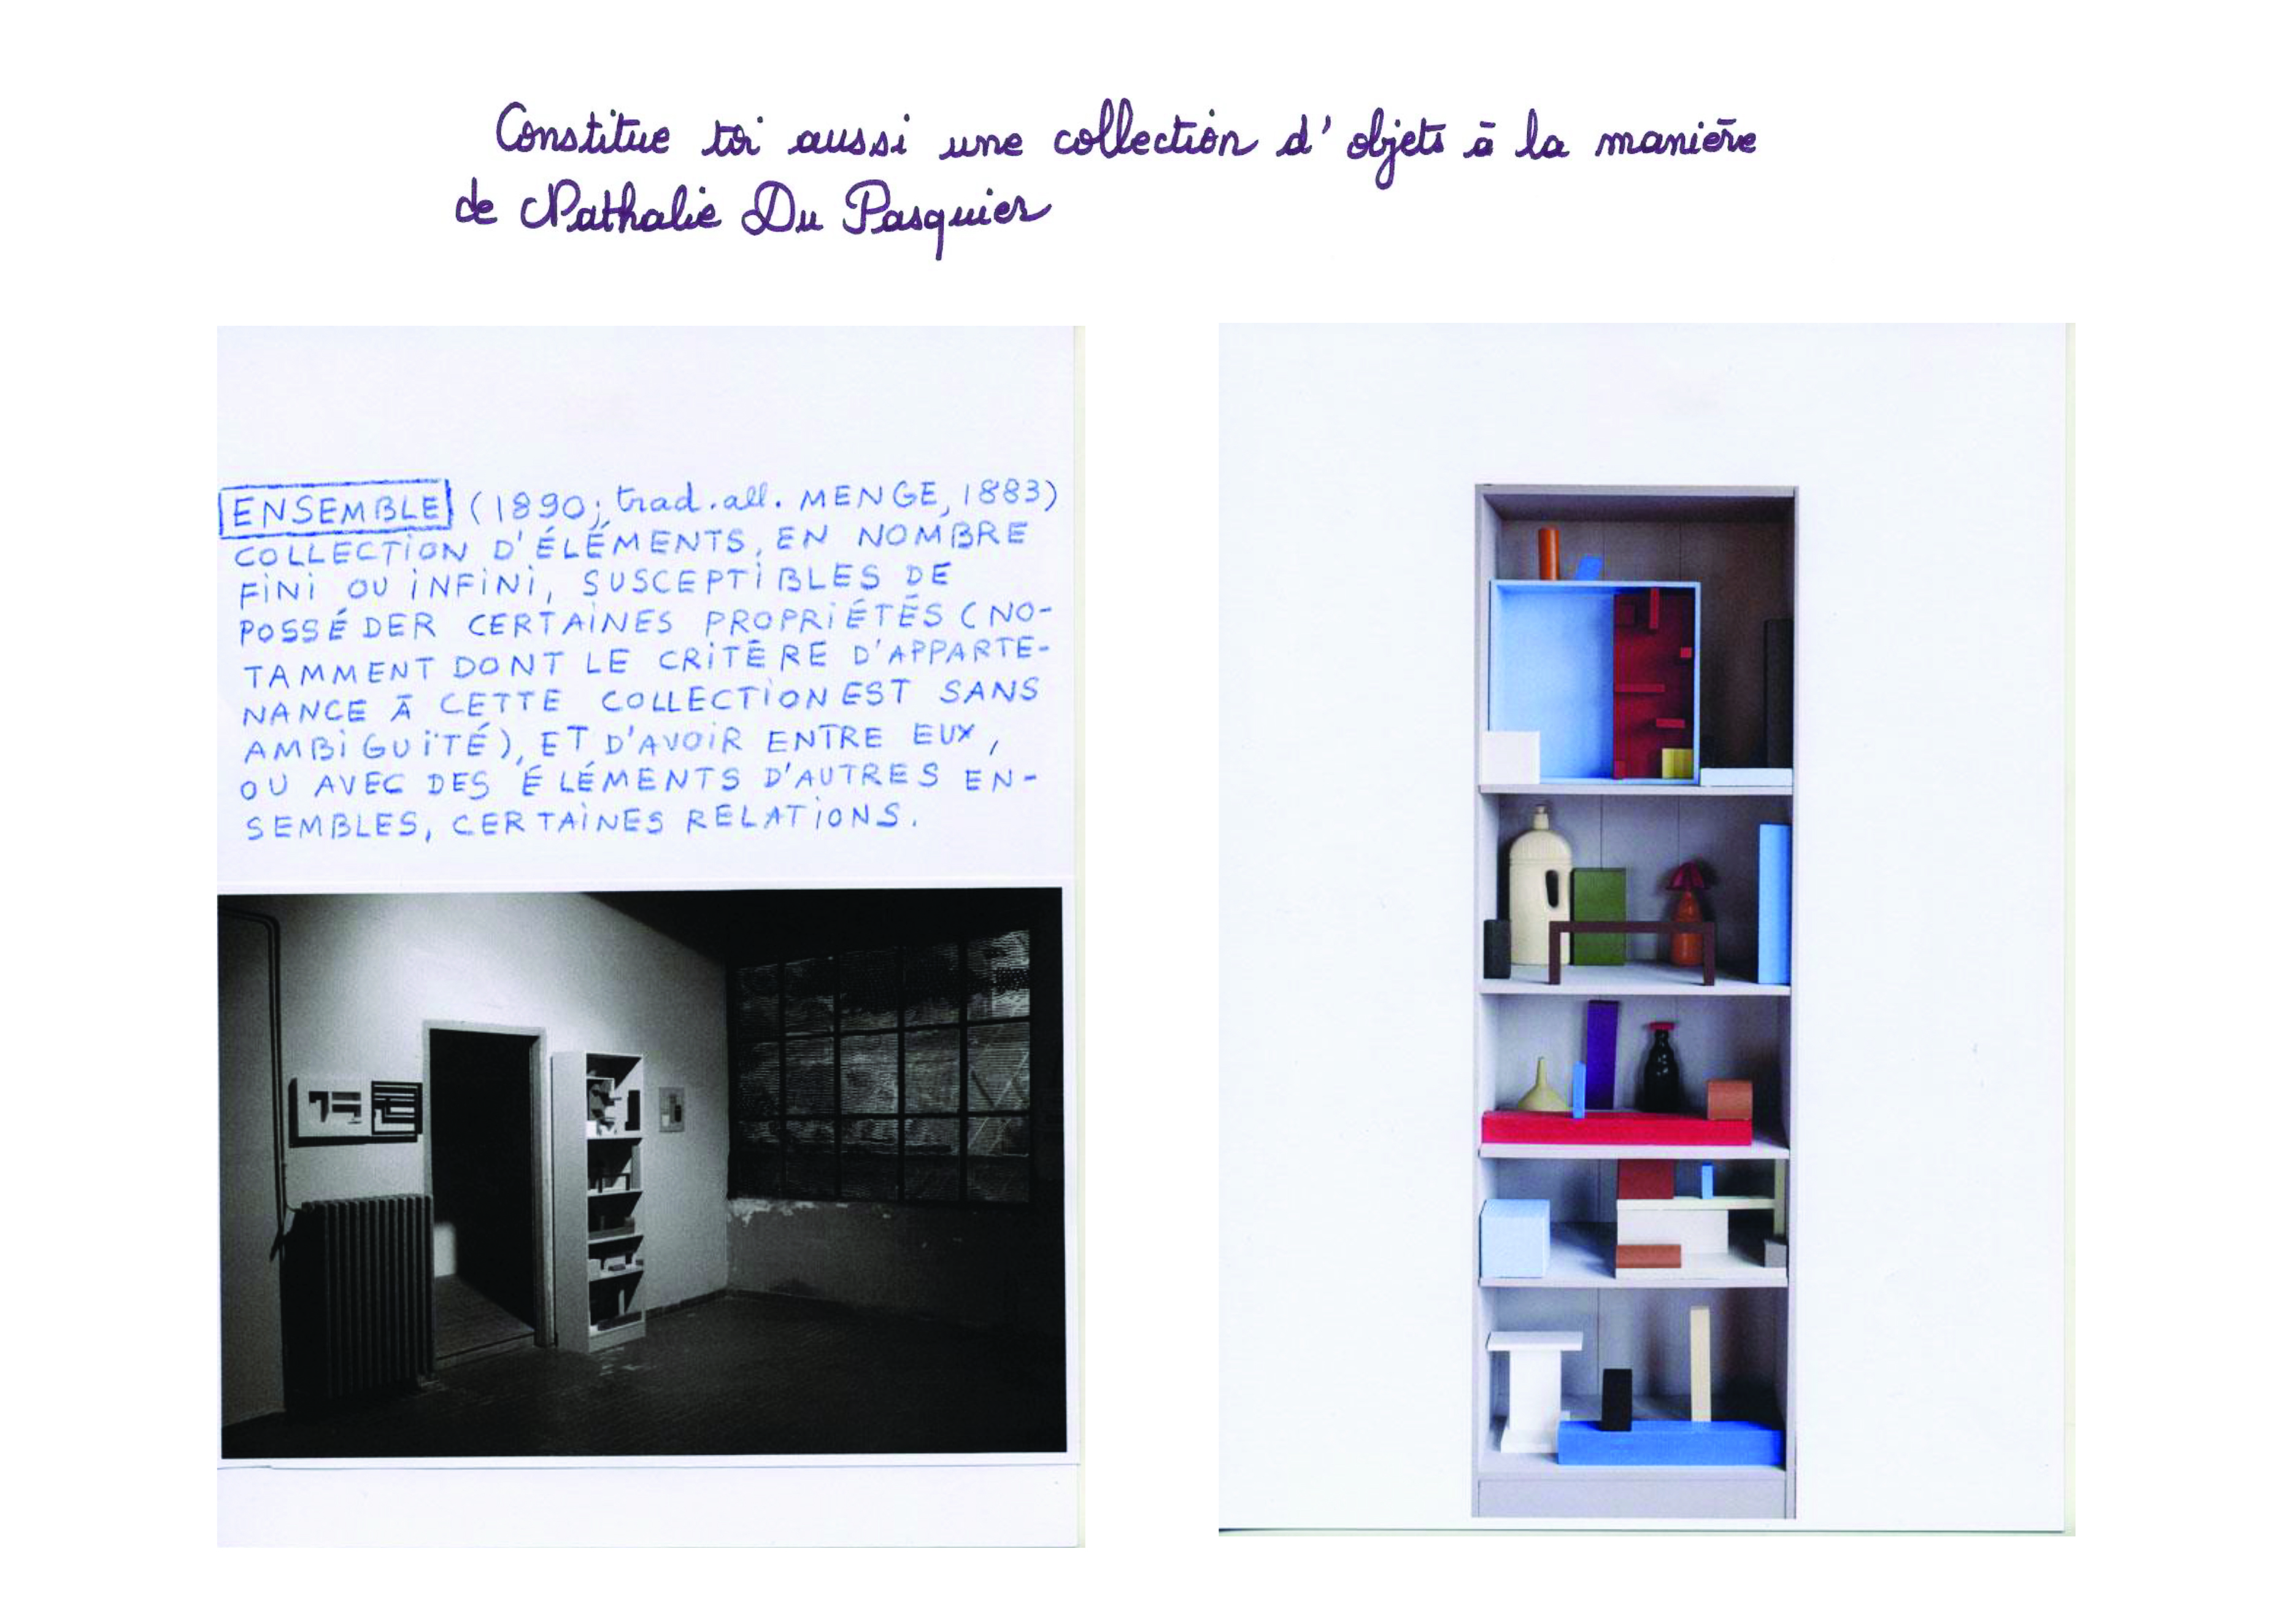 Constitue toi aussi une collection d'objets à la manière
de Nathalie Du Pasquier
ENSEMBLE (1890; trad. all. MENGE, 1883)
COLLECTION D'ÉLÉMENTS, EN NOMBRE
FINI OU INFINI, SUSCEPTIBLES DE
POSSÉDER CERTAINES PROPRIÉTÉS (NO-
TAMMENT DONT LE CRITÈRE D'APPARTE-
NANCE À CETTE COLLECTION EST SANS
AMBIGUÏTÉ), ET D'AVOIR ENTRE EUX,
OU AVEC DES ÉLÉMENTS D'AUTRES EN-
SEMBLES, CERTAINES RELATIONS.